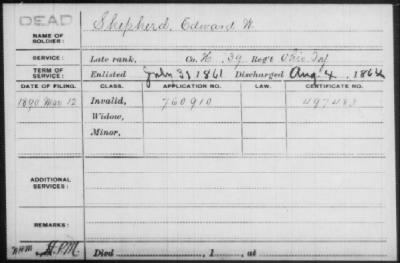 DEAD
NAME OF SOLDIER: Shepherd, Edward W.
SERVICE: Late rank, Co. H, 39 Reg't Ohio Inf
TERM OF SERVICE: Enlisted July 31 1861 Discharged Aug 4, 1864
DATE OF FILING. CLASS. APPLICATION NO. LAW. CERTIFICATE NO.
1890 Mar 12 Invalid, 760910 497483
Widow,
Minor,
ADDITIONAL SERVICES:
REMARKS:
Died , 1 , at